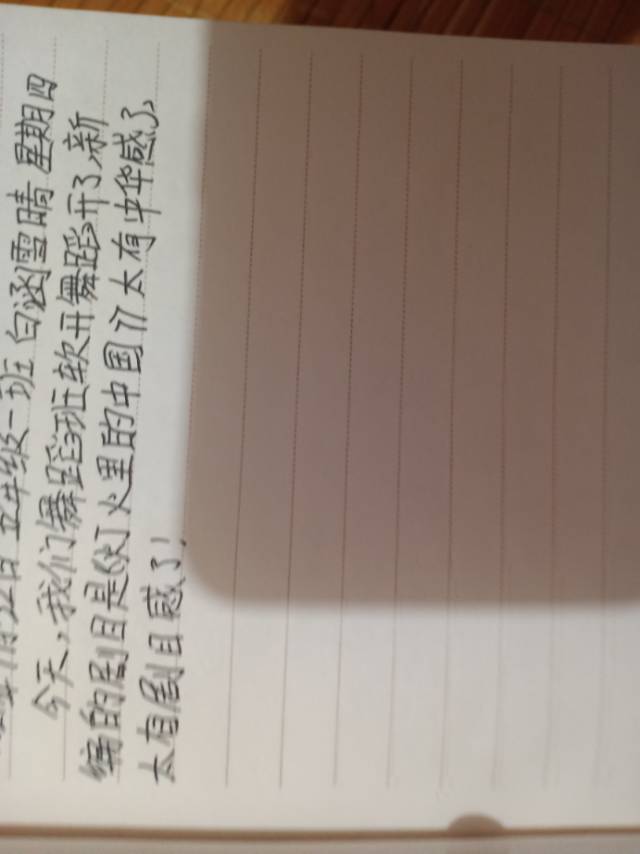 月22日 五年级一班 白涵雪晴 星期四
今天,我们舞蹈班软开舞蹈开了,新
编的剧目是《灯火里的中国》太有中华感了,
太有剧目感了!